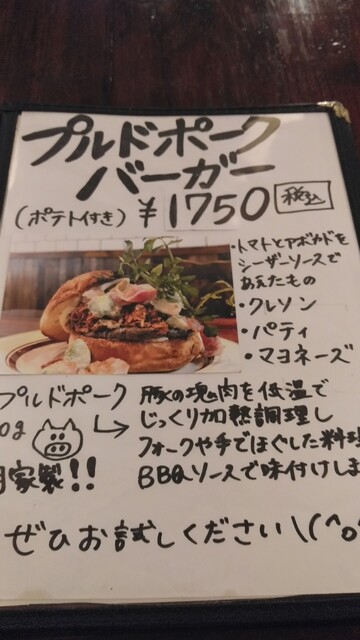 プルドポーク
バーガー
(ポテト付き) ¥1750 税込
・トマトとアボカドを
シーザーソースで
あえたもの
・クレソン
・パティ
・マヨネーズ
プルドポーク
0g
家製!!
豚の塊肉を低温で
じっくり加熱調理し
フォークや手でほぐした料理
BBQソースで味付けしま
ぜひお試しください\(^o